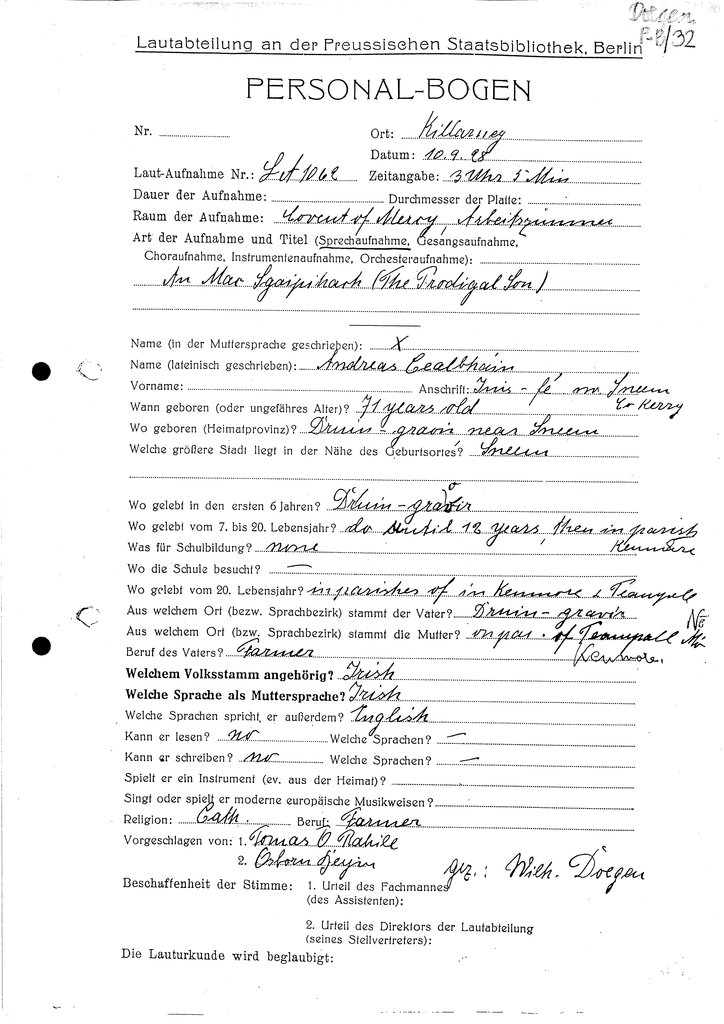 Doegen
P-B/32
Lautabteilung an der Preussischen Staatsbibliothek, Berlin
PERSONAL-BOGEN
Nr.
Ort: Killarney
Datum: 10.9.28
Laut-Aufnahme Nr.: LA 1062 Zeitangabe: 3 Uhr 5 Min
Dauer der Aufnahme: Durchmesser der Platte:
Raum der Aufnahme: Covent of Mercy, Arbeitszimmer
Art der Aufnahme und Titel (Sprechaufnahme, Gesangsaufnahme,
Choraufnahme, Instrumentenaufnahme, Orchesteraufnahme):
An Mac Sgaipitheach (The Prodigal Son)
Name (in der Muttersprache geschrieben): X
Name (lateinisch geschrieben): Andreas Cealbháin
Vorname: Anschrift: Inis-fé nr. Sneem
Co Kerry
Wann geboren (oder ungefähres Alter)? 71 years old
Wo geboren (Heimatprovinz)? Druim-gravir near Sneem
Welche größere Stadt liegt in der Nähe des Geburtsortes? Sneem
Wo gelebt in den ersten 6 Jahren? Druim-
Wo gelebt vom 7. bis 20. Lebensjahr? do until 12 years, then in parish
Kenmare
Was für Schulbildung? none
Wo die Schule besucht? —
Wo gelebt vom 20. Lebensjahr? in parishes of in Kenmore &
Aus welchem Ort (bezw. Sprachbezirk) stammt der Vater? Druim-gravir
Aus welchem Ort (bzw. Sprachbezirk) stammt die Mutter? on par. of Teampall
Kenmore.
Beruf des Vaters? Farmer
Welchem Volksstamm angehörig? Irish
Welche Sprache als Muttersprache? Irish
Welche Sprachen spricht er außerdem? English
Kann er lesen? no Welche Sprachen? —
Kann er schreiben? no Welche Sprachen? —
Spielt er ein Instrument (ev. aus der Heimat)?
Singt oder spielt er moderne europäische Musikweisen?
Religion: Cath. Beruf: Farmer
Vorgeschlagen von: 1. Tomas O Rahile
2. Osborn
gez.: Wilh. Doegen
Beschaffenheit der Stimme: 1. Urteil des Fachmannes
(des Assistenten):
2. Urteil des Direktors der Lautabteilung
(seines Stellvertreters):
Die Lauturkunde wird beglaubigt: